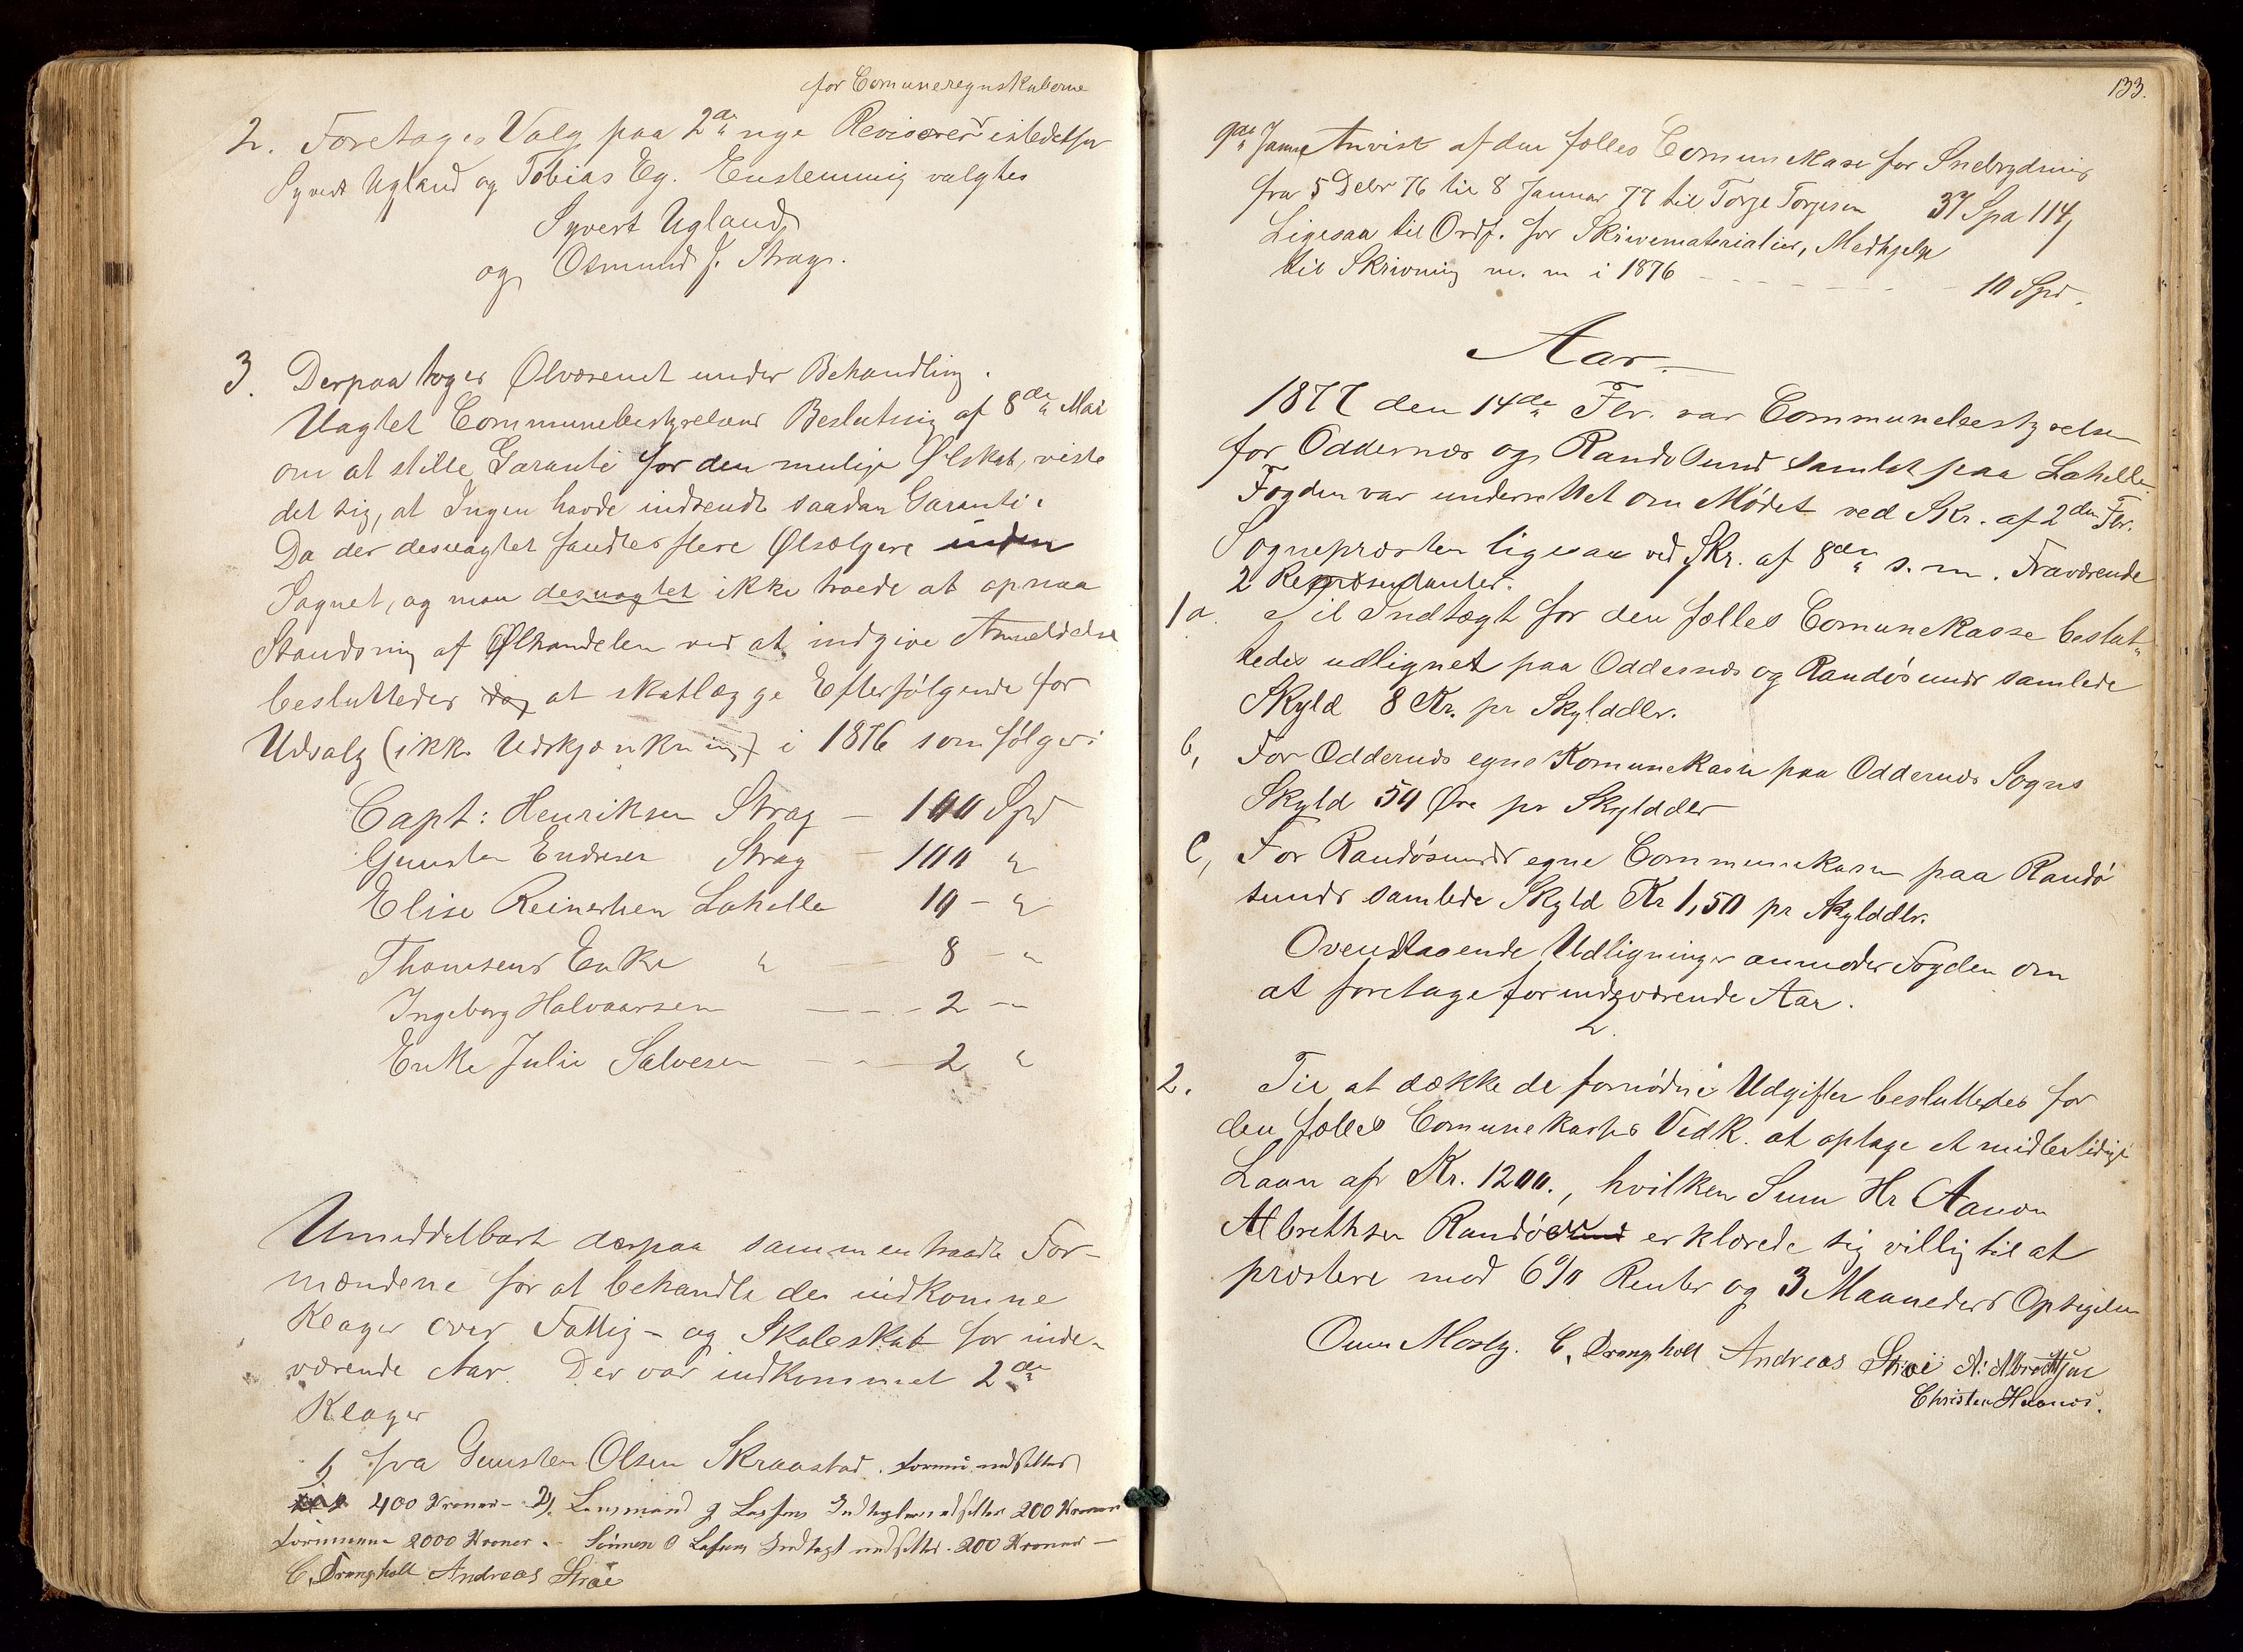 for Comuneregnskaberne
2. Foretages Valg paa 2de nye Revisorer istedetfor
Syvert Ugland og Tobias Eg. Enstemmig valgtes
Syvert Ugland
og Osmund J. Strage.
3. Derpaa toges Ølvæsenet under Behandling.
Uagtet Communebestyrelsens Beslutning af 8de Mai
om at stille Garanti for den mulige Ølskat, viste
det sig, at Ingen havde indsendt saadan Garanti.
Da der desuagtet fandtes flere Ølsælgere inden
Sognet, og man desuagtet ikke troede at opnaa
Standsning af Ølhandelen ved at indgive Anmeldelse
besluttedes at skatlægge Efterfølgende for
Udsalg (ikke Udskjænkning) i 1876 som følger:
Capt: Henriksen Strag - 100 Spd
Gunsten Endresen Strag - 100 "
Elise Reinertsen Lahelle 10 - "
Thomsens Enke " - 8 - "
Ingeborg Halvaarsen - - - 2 -
Enke Julie Salvesen - - 2 "
Umiddelbart derpaa sammentraadte For-
mændene for at behandle de indkomne
Klager over Fattig- og Skoleskat for inde-
værende Aar. Der var indkommet 2de
Klager
1, fra Gunsten Olsen Skraastad. formue nedsættes
400 Kroner - 2, Lensmand J Lassens Indtægt nedsettes 200 Kroner
formuen 2000 Kroner - Sønnen O Lassens Indtægt nedsettes 200 Kroner -
C. Drangsholt Andreas Straie
133.
9de Januar Anvist af den fælles Comunekase for Snebrydning
fra 5 Debr 76 til 8 Januar 77 til Torge Torgesen 37 Spd 114
Ligesaa til Ordf. for Skrivematerialier, Medhjelp
til Skrivning m. m i 1876 - - - - - 10 Spd.
Aar
1877 den 14de Fbr. var Communebestyrelsen
for Oddernæs og Randøsund samlet paa Lahelle.
Fogden var underrettet om Mødet ved Skr. af 2den Fbr.
Sognepræsten ligesaa ved Skr. af 8de s. m. Fraværende
2 Repræsentanter.
1a. Til Indtægt for den fælles Comunekasse beslut-
tedes udlignet paa Oddernæs og Randøsunds samlede
Skyld 8 Kr. pr Skylddlr.
b, For Oddernæs egne Komunekasse paa Oddernæs Sogns
Skyld 50 Øre pr Skylddlr
c, For Randøsunds egne Communekasse paa Randø
sunds samlede Skyld Kr 1,50 pr Skylddlr.
Ovenstaaende Udligninger anmodes Fogden om
at foretage for indeværende Aar.
2.
2. Til at dække de fornødne Udgifter besluttedes for
den fælles Comunekasses Vedk. at optage et midlertidigt
Laan af Kr. 1200., hvilken Sum Hr Aanon
Albrethsen Randøsund erklærede sig villig til at
præstere mod 6% Renter og 3 Maaneders Opsigelse
Omun Mosby. C. Drangsholt Andreas Straie A: Albrethsen
Christen Haanes.